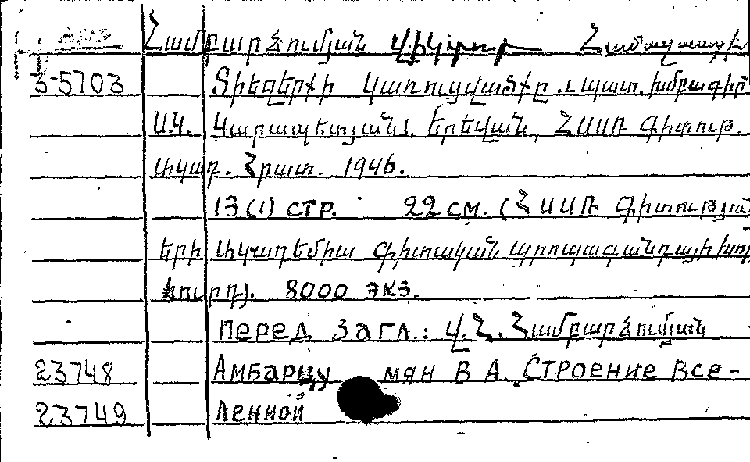 Համբարձումյան Վիկտոր Համազասպի
3-5703 Տիեզերքի կառուցվածքը. պատ. խմբագիր
Ա.Կ. Կարապետյան. Երևան, ՀՍՍՌ Գիտութ.
Ակադ. Հրատ. 1946.
13 (1) стр. 22 см. (ՀՍՍՌ Գիտության
երի Ակադեմիա գիտական պրոպագանդայի խոր
հուրդ). 8000 экз.
Перед загл.: Վ.Հ. Համբարձումյան
23748 Амбарцумян В А. Строение Все-
23749 ленной